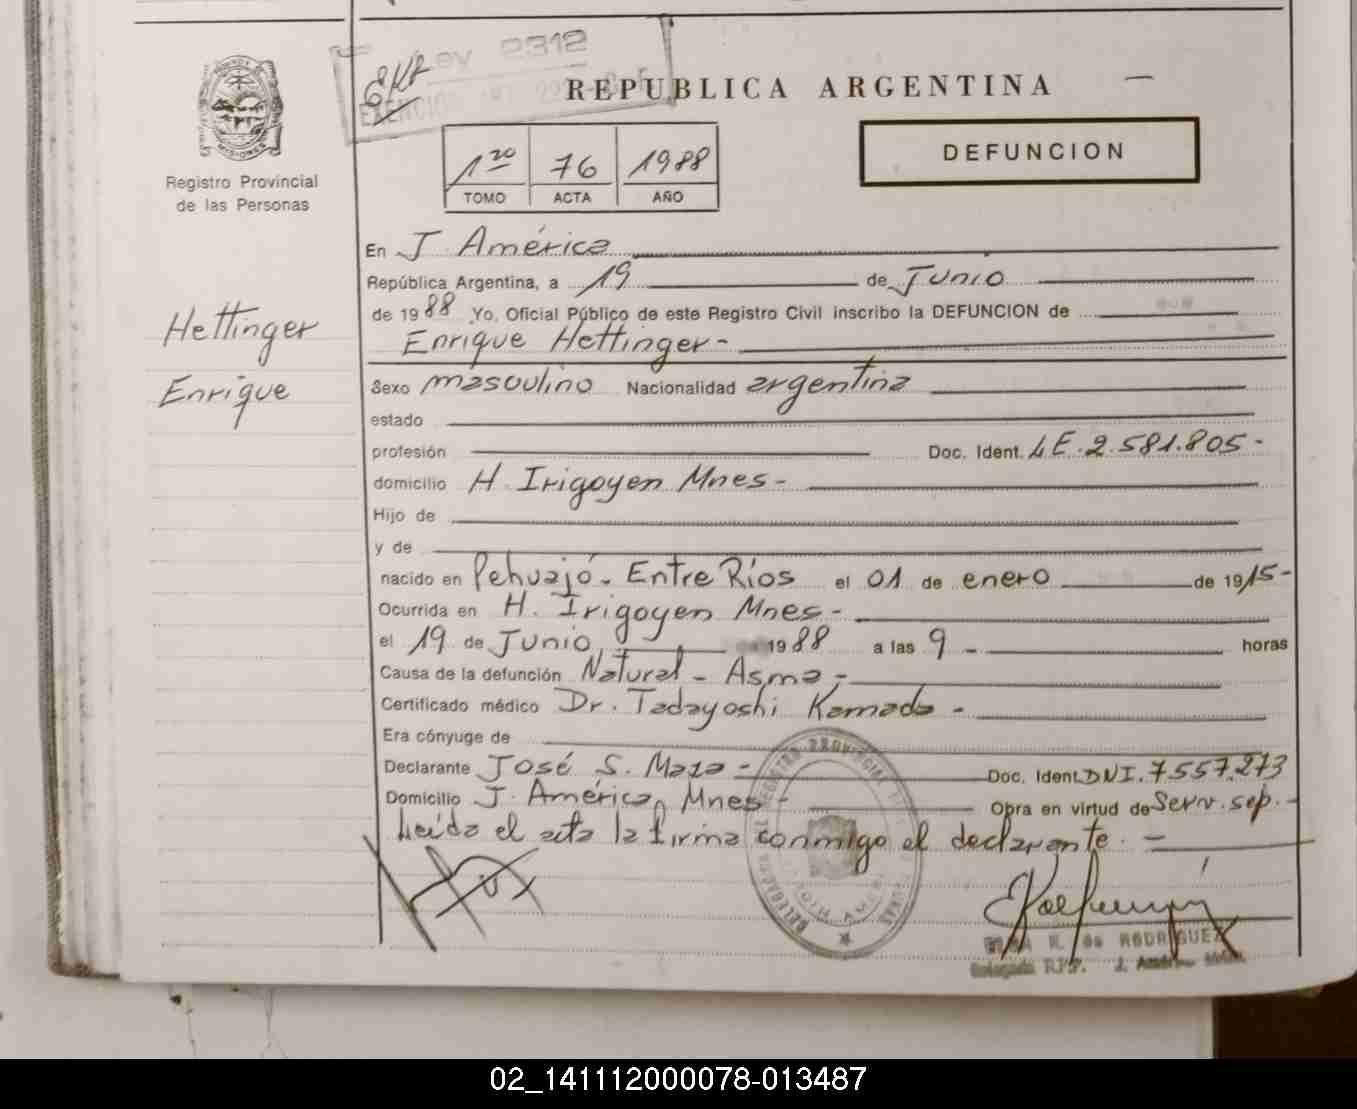 Ley 2312
REPUBLICA ARGENTINA
MISIONES
Registro Provincial
de las Personas
1º 76 1988
TOMO ACTA AÑO
DEFUNCION
En J. América
República Argentina, a 19 de Junio
de 1988 Yo, Oficial Público de este Registro Civil inscribo la DEFUNCION de
Hettinger
Enrique
Enrique Hettinger -
Sexo masculino Nacionalidad argentina
estado
profesión Doc. Ident. LE.2.581.805-
domicilio H. Irigoyen Mnes -
Hijo de
y de
nacido en Pehuajó. Entre Ríos el 01 de enero de 1915-
Ocurrida en H. Irigoyen Mnes -
el 19 de Junio 1988 a las 9 - horas
Causa de la defunción Natural - Asma -
Certificado médico Dr. Tadayoshi Kamada -
Era cónyuge de
Declarante José S. Maza - Doc. Ident. DNI.7.557.273
Domicilio J. América, Mnes - Obra en virtud de Serv. sep. -
Leída el acta la firma conmigo el declarante. -
REGISTRO PROVINCIAL
DELEGACIA
R. de RODRIGUEZ
Delegada R.P.P. J. América
02_141112000078-013487